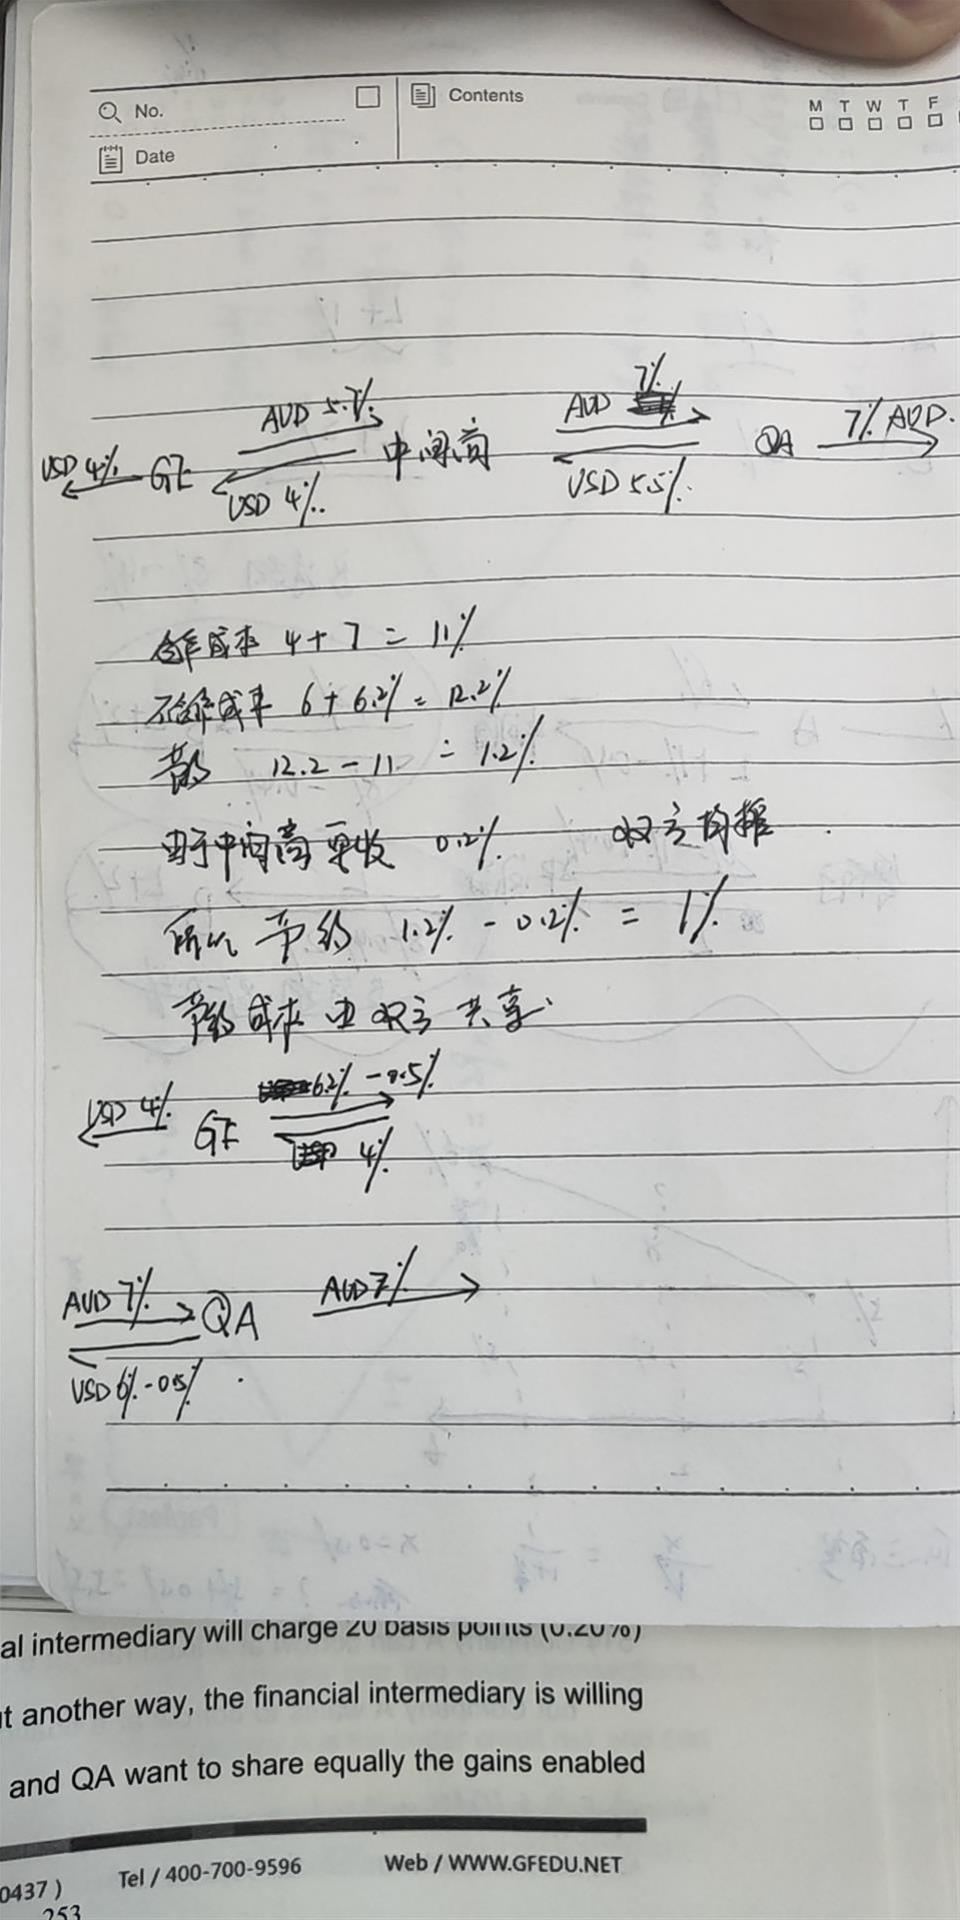 No.
Contents
M T W T F
Date
7%
AUD 5.7%
AUD
7% AUD.
USD 4%
GE
中间商
QA
USD 4%.
USD 5.5%
合作成本 4+7=11%
不合作成本 6+6.2%=12.2%
节约 12.2-11=1.2%
由于中间商要收 0.2% 双方均摊
所以 节约 1.2%-0.2%=1%
节约成本由双方共享.
6.2%-0.5%
USD 4% GE
4%
AUD 7% QA AUD 7%
USD 6%-0.5%
al intermediary will charge 20 basis points (0.20%)
t another way, the financial intermediary is willing
and QA want to share equally the gains enabled
0437 ) Tel / 400-700-9596 Web / WWW.GFEDU.NET
253